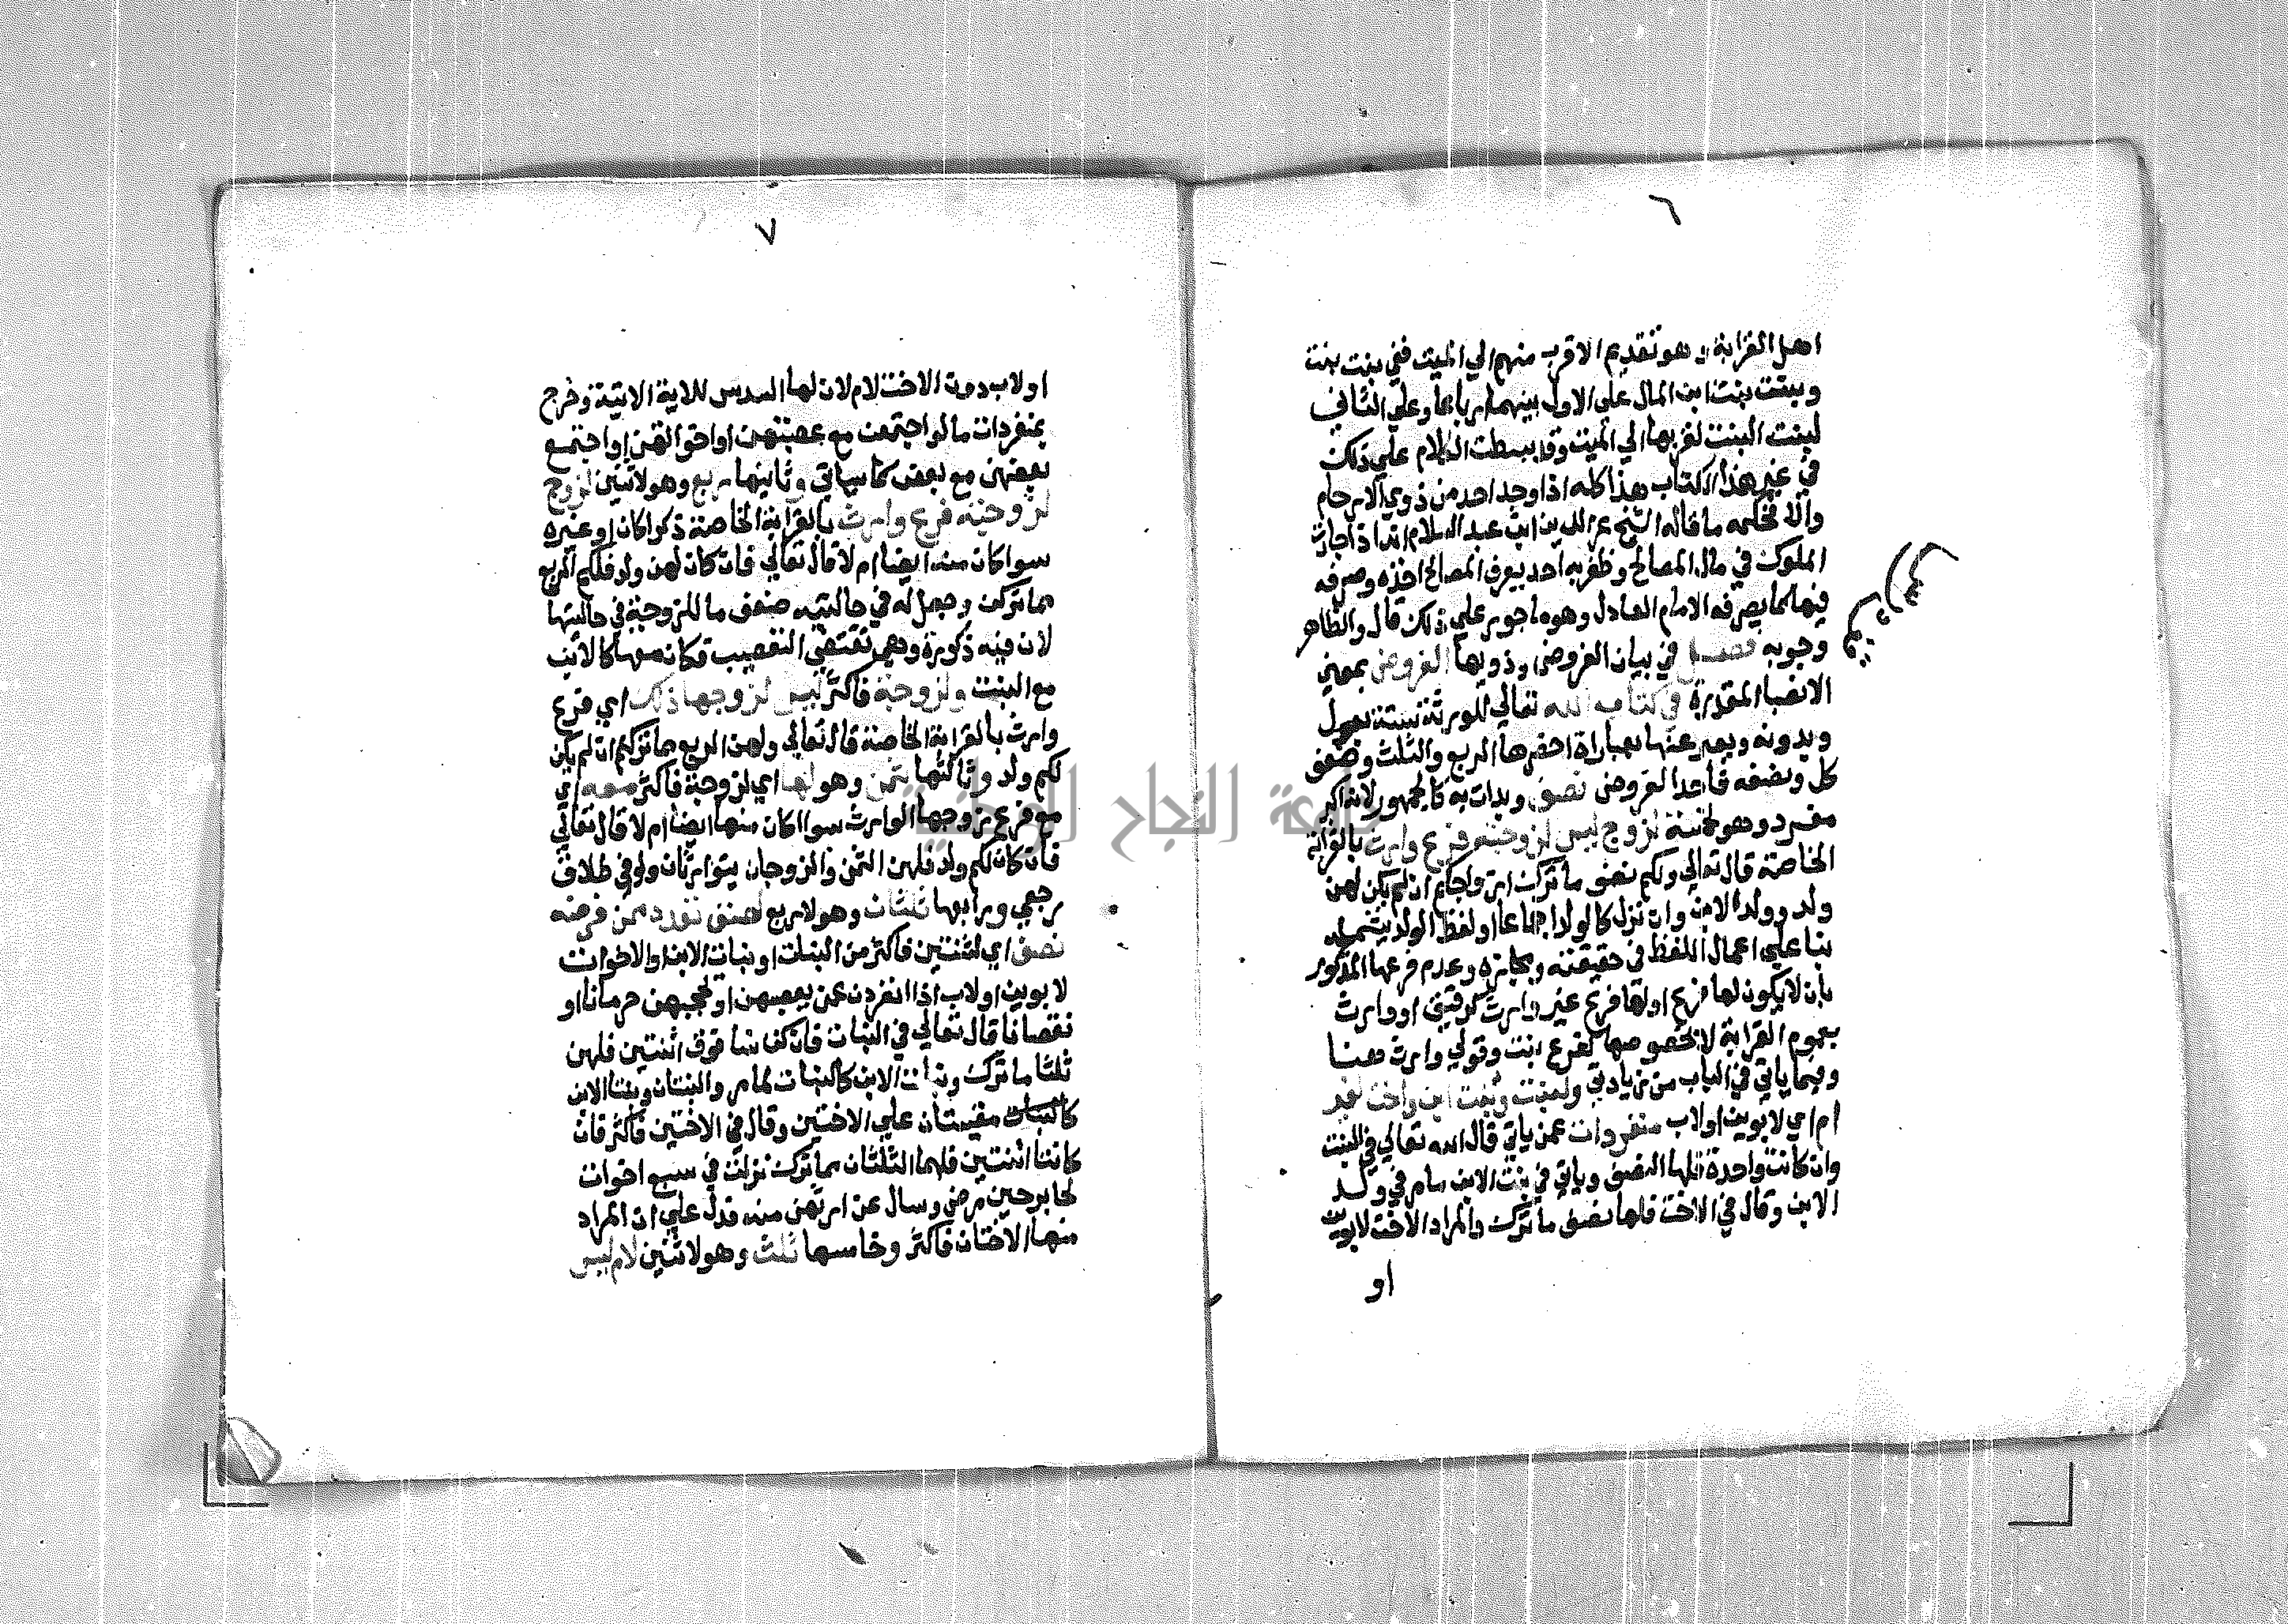 ٦
اهل القرابة وهو تقديم الاقرب منهم الي الميت ففي بنت بنت
وبنت بنت ابن المال علي الاول بينهما ارباعا وعلي الثاني
لبنت البنت لقربها الي الميت وقد بسطت الكلام علي ذلك
في غير هذا الكتاب هذا كله اذا وجد احد من ذوي الارحام
والا فحكمه ما قاله الشيخ عز الدين ابن عبد السلام انه اذا جارت
الملوك في مال المصالح وظفر به احد يعرف المصالح اخذه وصرفه
فيها كما يصرفه الامام العادل وهو ماجور علي ذلك قال والظاهر
وجوبه فصل في بيان الفروض وذويها الفروض بمعني
الانصبا المقدرة في كتاب الله تعالي للورثة ستة بعول
وبدونه ويعبر عنها بعبارات اخصرها الربع والثلث وضعف
كل ونصفه فاحد الفروض نصف وبدات به كالجمهور لانه اكبر
مفرد وهو لخمسة لزوج ليس لزوجته فرع وارث بالقرابة
الخاصة قال تعالي ولكم نصف ما ترك ازواجكم ان لم يكن لهن
ولد وولد الابن وان نزل كالولد اجماعا او لفظ الولد يشمله
بنا علي اعمال اللفظ في حقيقته ومجازه وعدم فرعها المذكور
بان لا يكون لها فرع او لها فرع غير وارث كرقيق او وارث
بعموم القرابة لا بخصوصها كفرع بنت وقولي وارث هنا
وفيما ياتي في الباب من زيادتي ولبنت وبنت ابن واخت لغير
ام اي لابوين او لاب منفردات عمن ياتي قال الله تعالي في البنت
وان كانت واحدة فلها النصف وياتي في بنت الابن ما مر في ولد
الابن وقال في الاخت فلها نصف ما ترك والمراد الاخت لابوين
او
٧
او لاب دون الاخت لام لان لها السدس للاية الاتية وخرج
بمنفردات ما لو اجتمعن مع معصبهن او اخواتهن او اجتمع
بعضهن مع بعض كما سياتي وثانيها ربع وهو لاثنين لزوج
لزوجته فرع وارث بالقرابة الخاصة ذكرا كان او غيره
سوا كان منه ايضا ام لا قال تعالي فان كان لهن ولد فلكم الربع
مما تركن وجعل له في حالتيه ضعف ما للزوجة في حالتيها
لان فيه ذكورة وهي تقتضي التعصيب فكان معها كالابن
مع البنت ولزوجة فاكثر ليس لزوجها ذلك اي فرع
وارث بالقرابة الخاصة قال تعالي ولهن الربع مما تركتم ان لم يكن
لكم ولد وثالثها ثمن وهو لها اي لزوجة فاكثر معه اي
مع فرع زوجها الوارث سوا اكان منها ايضا ام لا قال تعالي
فان كان لكم ولد فلهن الثمن والزوجان يتوارثان ولو في طلاق
رجعي ورابعها ثلثان وهو لاربع لصنف تعدد ممن فرضه
نصف اي لثنتين فاكثر من البنات او بنات الابن او الاخوات
لابوين او لاب اذا انفردن عمن يعصبهن او يحجبهن حرمانا او
نقصانا قال تعالي في البنات فان كن نسا فوق اثنتين فلهن
ثلثا ما ترك وبنات الابن كالبنات لما مر والبنتان وبنتا الابن
كالبنات مقيستان علي الاختين وقال في الاختين فاكثر فان
كانتا اثنتين فلهما الثلثان مما ترك نزلت في سبع اخوات
لجابر حين مرض وسال عن ارثهن منه فدل علي ان المراد
منها الاختان فاكثر وخامسها ثلث وهو لاثنين لام ليس
جامعة النجاح الوطنية